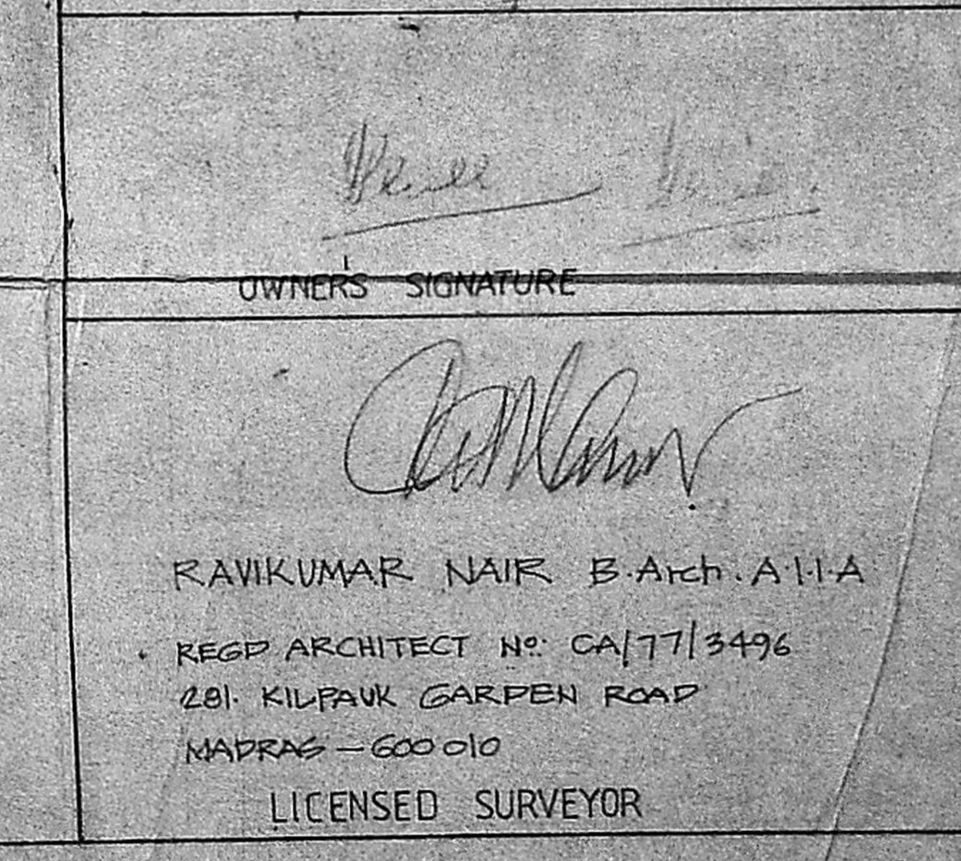 OWNER'S SIGNATURE
RAVIKUMAR NAIR B.Arch.A.I.I.A
REGD ARCHITECT No: CA/77/3496
281. KILPAUK GARDEN ROAD
MADRAS - 600 010
LICENSED SURVEYOR